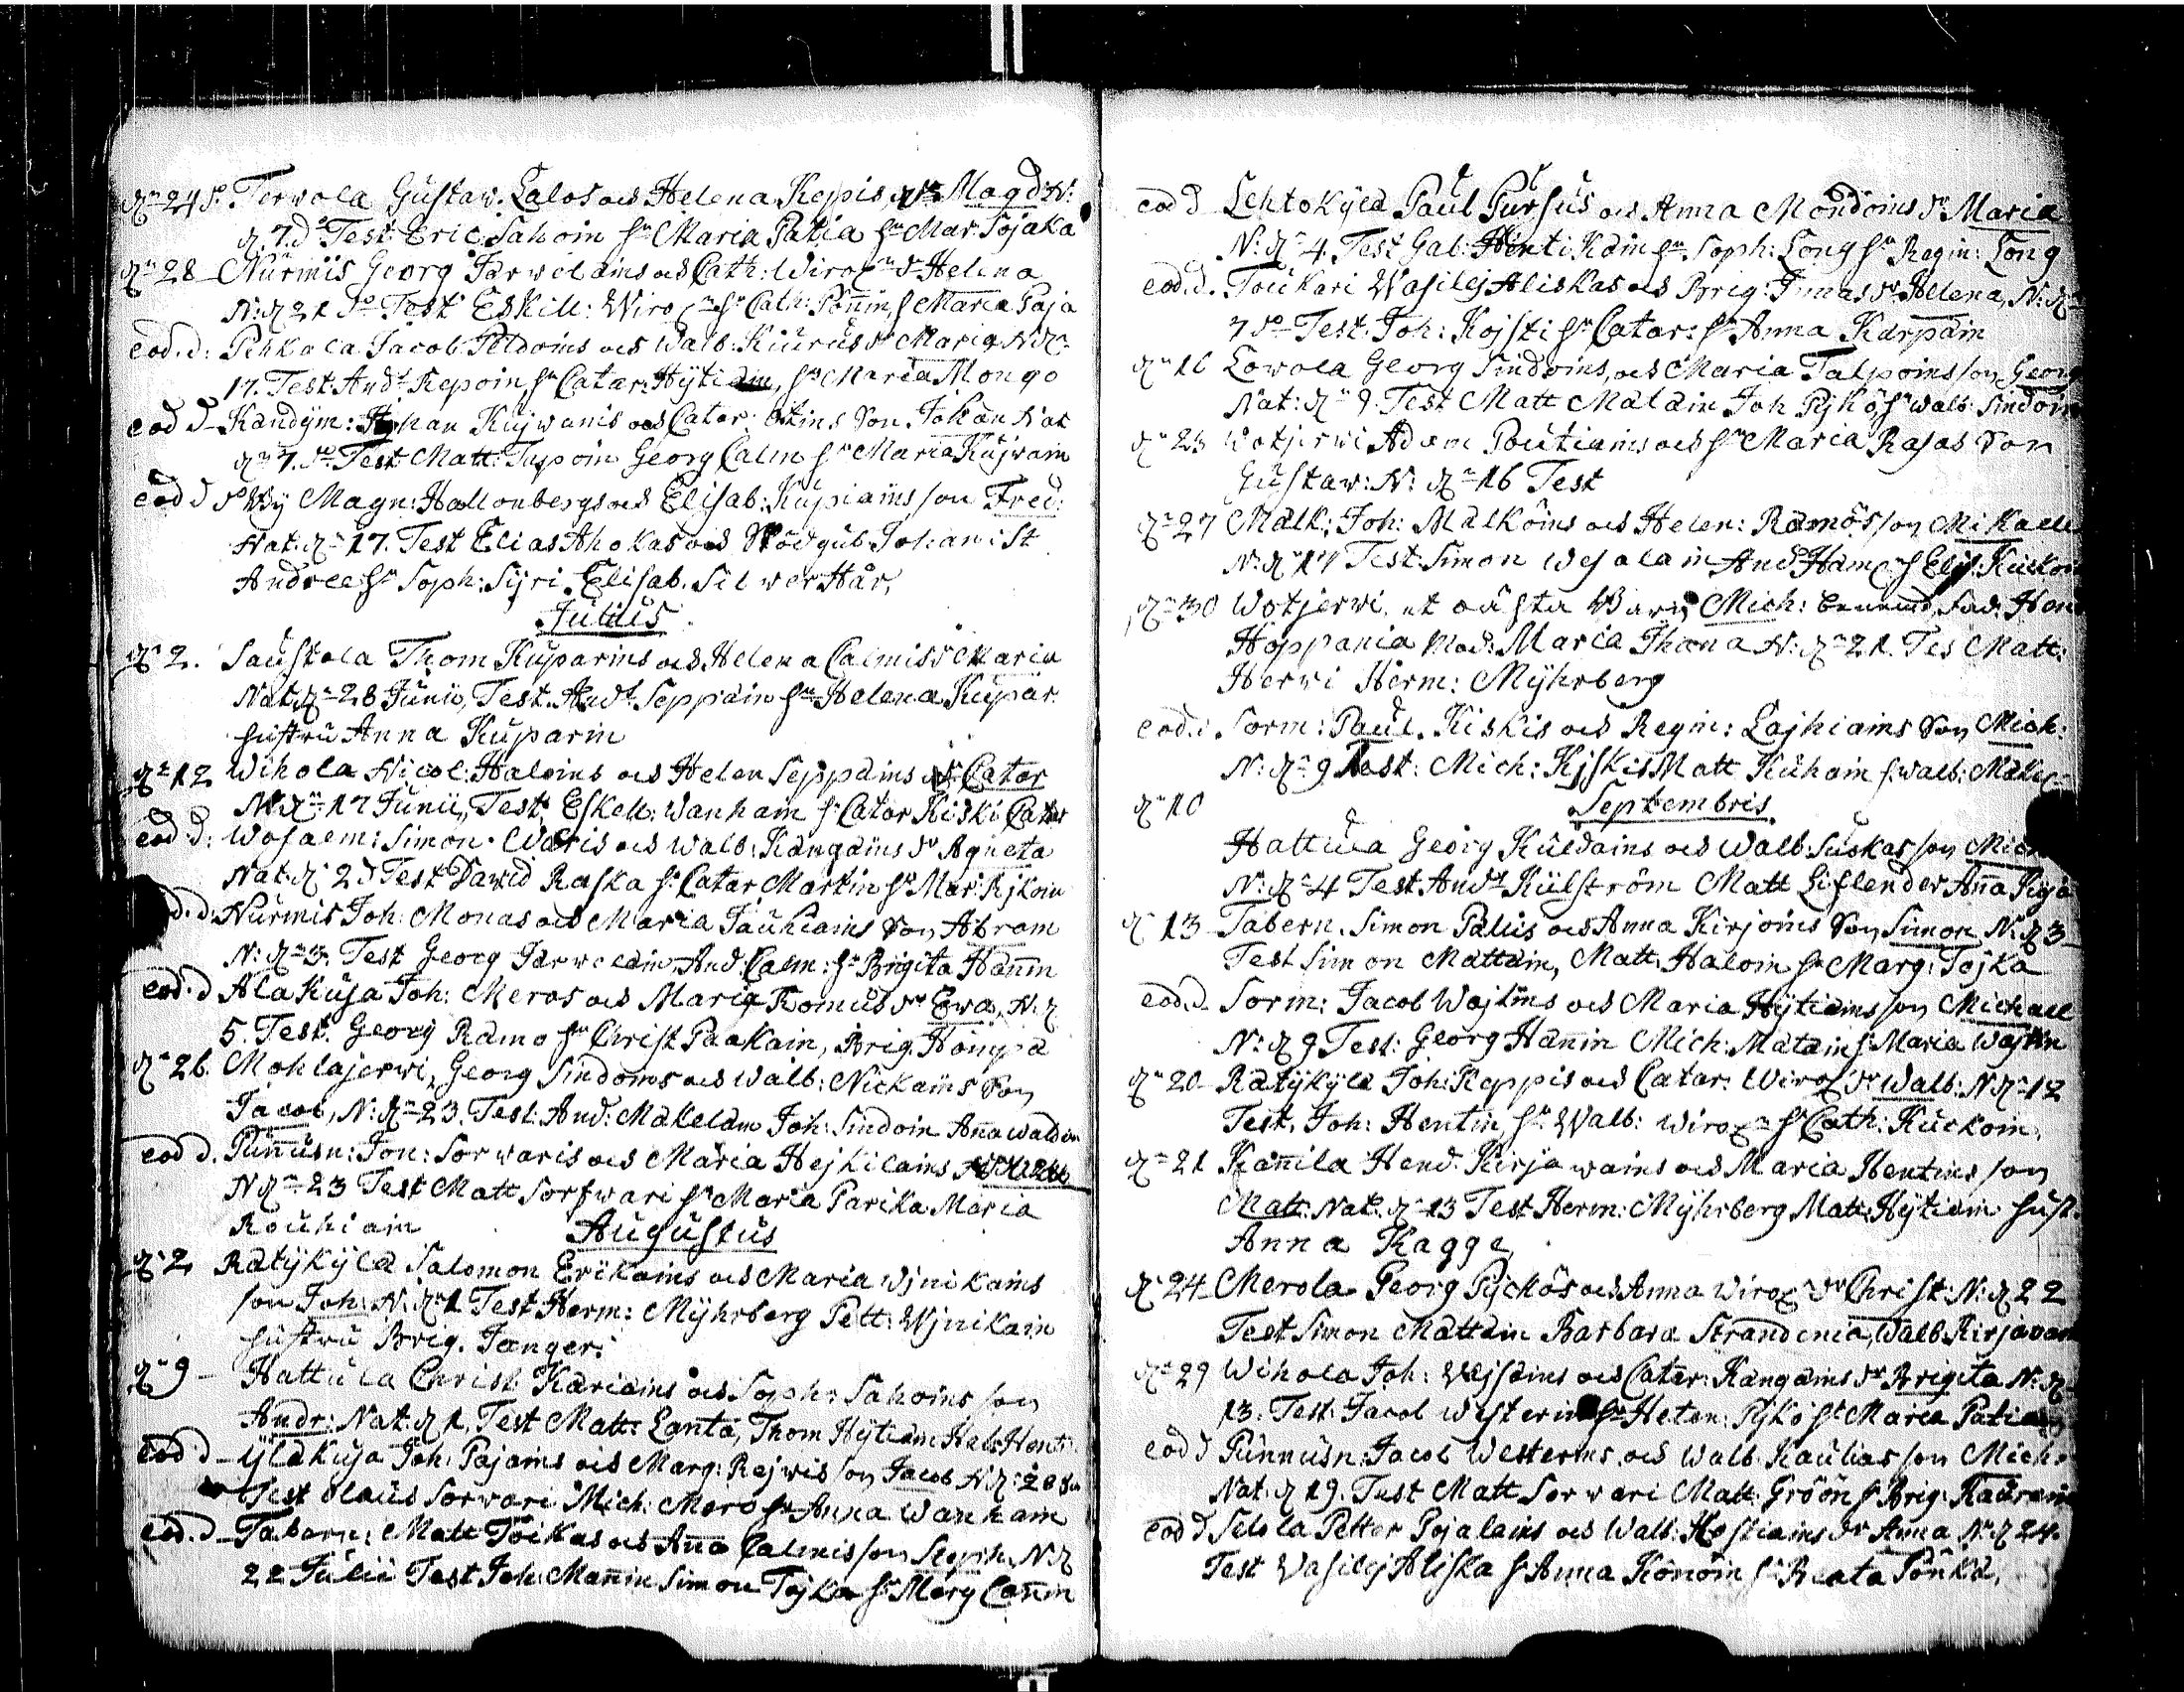 d. 24 Terwola Gustaw. Lalos och Helena Kepis dr Magd: N:
d. 7. do Test Eric Sahoin hu Maria Patia hu Mar Sojaka
dn 28 Nurmis Georg Jarwelains och Cath: Wirox dr Helena
N: d 21 Test Eskill: Wirox hu Cath: Ponnin h Maria Paja
eod. d: Pehkola Jacob Peldoins och Walb: Kiurus dr Maria N d
17. Test: And: Repoin hu Catar: Hÿtiain, hu Maria Mongo
eod d Kandÿm: Johan Kujwanis och Catar: Son Johan Nat
dn 7. Test Matt: Tuppoin Georg Calm hu Maria Kujwain
eod d Wÿ Magn: Hallonbergs och Elisab: Kupiains, son Fred:
Nat: dn 17. Test Elias Ahokas och Johan
Andree hu Soph: Sÿri. Elisab. Silwerhår,
Julius
dn 2. Saustola Thom Kuparins och Helena Calmis dr Maria
Nat dn 28 Junii, Test. And: Seppäin hu Helena Kupar.
hustru Anna Kuparin
dn 12 Wihola Nicol: Haloins och Helen Seppäins dr Catar
N: dn 17 Junii, Test, Eskell: Wanhain h Catar Kiski Catar
eod: d: Wosaem: Simon Waris och Walb: Kangains dr Agneta
Nat: d 2 d Test Dawid Raska h Catar Martin hu Mar: Kjkoin
d. d: Nurmis Joh: Monas och Maria Jauhiains Son Abram
N: dn 3. Test Georg Jarwelain, And: Calm: hu Brigita Hannin
eod. d Alakuja Joh: Meros och Maria Romus dr Ewa, N: d
5. Test. Georg Rämo hu Christ Paakain, Brig. Hömpa
dn 26. Mohlajerwi, Georg Sindoins och Walb: Nickains Son
Jacob, N: dn 23. Test: And: Makelain Joh: Sindoin Anna Walden
eod d. Punnusn: Jon: Sorwaris och Maria Hejkilains
N dn 23 Test Matt Sorwari hu Maria Parika Maria
Rouhiain Augustus
dn 2 Ratÿkÿla Salomon Erikains och Maria Wjnikains
son Joh: N: dn 1 Test Herm: Mÿhrberg Pett: Wjnikain
hustru Brig. Janger:
dn 9 Hattula Christ Kariains och Soph: Sahoins son
Andr: Nat: d 1, Test Matt: Lanta, Thom Hÿtiain Hel: Henti
eod d Ylakuja Joh: Pajains och Marg: Rejwis son Jacob N d: 28
Test Olaus Sorwari Mich: Mero hu Anna Wanhain
eod. d Tabern: Matt Töikas och Anna Calmis son Steph: N: d
22 Julii Test Joh: Mannin Simon Tojka hu Marg Cannin
eod d Lehtokÿla Paul Pursus och Anna Mondoins dr Maria
N: dn 4. Test Gab: Hentikain hu Soph: Long hu Regin: Long
eod. d. Toukari Wasilej Aliskas och Brig: Innas dr Helena, N: d
7 Test: Joh: Kojsti hu Catar: hu Anna Karpain
dn 16 Lowola Georg Sindoins, och Maria Talpoins son Georg
Nat: dn 9. Test Matt Malain Joh Pÿkö, hu Walb: Sindoin
dn 23 Wotjerwi Adam Poutiains och hu Maria Rasas Son
Gustaw: N: dn 16 Test
dn 27 Mälk: Joh: Malköins och Helen: Rämös son Mikaell
N: dn 17 Test: Simon Wesalain And: Häm h Elis: Kuckoin
dn 30 Wotjerwi, et oäkta Barn, Mich: benemd, Fad: Hen
Hoppania Mod: Maria Ihana N: dn 21. Tes Matt:
Herwi Herm: Mÿhrberg
eod: Sorm: Paul. Kiskis och Regin: Lajhiains Son Mich:
N: dn 9 Test: Mich: Kjskis Matt Kuhain h Walb: Mäke
dn 10 Septembris
Hattula Georg Kuldains och Walb: Suskas son Mich
N: dn 4 Test And: Kulström Matt Liflender Anna Kija
d 13 Tabern. Simon Palus och Anna Kirjoins Son Simon N: d 3
Test Simon Mattain, Matt: Haloin hu Marg: Tojka
eod. d. Sorm: Jacob Wajtins och Maria Hÿtiains son Michael
N: d 9 Test: Georg Hannin Mich: Matain h Maria Wajtin
dn 20 Ratÿkÿla Joh: Keppis och Catar: Wirox dr Walb: N: dn 12
Test, Joh: Hentin, hu Walb: Wirox h Cath: Kuckoin,
dn 21 Kannila Hend: Kirjawains och Maria Hentins son
Matt: Nat: dn 13 Test Herm: Mÿhrberg Matt: Hÿtiain hust.
Anna Kagge
dn 24 Merola Georg Pÿckös och Anna Wirox dr Christ: N: d 22
Test Simon Mattain Barbara Strandenia, Walb: Kirjawain
dn 29 Wihola Joh: Wäjsains och Catar: Kangains dr Brigita N: d
13. Test: Jacob Westerin hu Helen: Pÿkö hu Maria Patiain
eod d Punnusn: Jacob Westerins och Walb Kaulias son Mich:
Nat: d 19. Test Matt Sorwari Matt: Gröön h Brig: Kaurain
eod d Selola Petter Pojalains och Walb: Hostiains dr Anna N: d 24.
Test Wasilej Aliska h Anna Könöin hu Beata Pönkä,